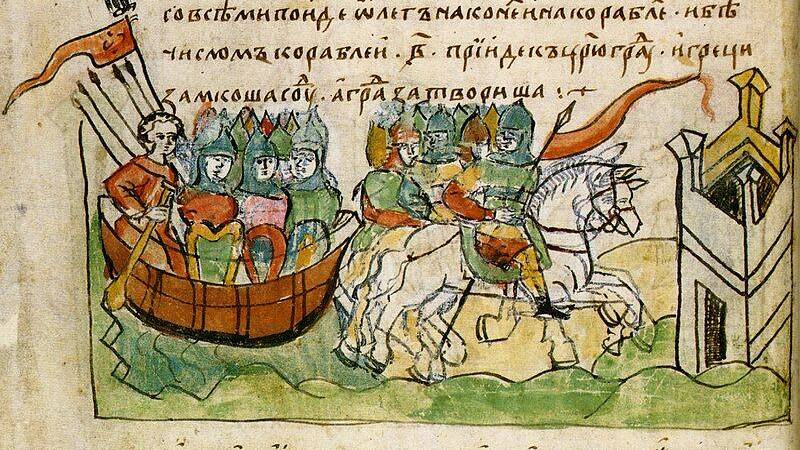 со всѣми поиде ѡлегъ на конеи и на корабле · и бѣ
числомъ кораблеи · в҃ · прїиде къ цр҃юграⷣ · и греци
замкоша соуⷣ · а граⷣ затвориша :